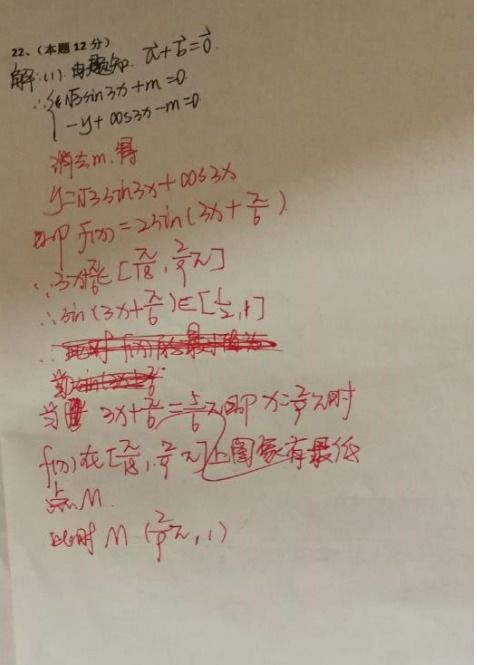 22、(本题12分)
解:(1).由题知. a⃗+b⃗=0⃗.
∴{√3sin3x+m=0
-y+cos3x-m=0
消去m.得
y=√3sin3x+cos3x
即 f(x)=2sin(3x+π/6)
∴3x+π/6∈[π/18,2/9π]
∴sin(3x+π/6)∈[1/2,1]
当 3x+π/6=5/6π即x=2/9π时
f(x)在[π/18,2/9π]上图象有最低
点M.
此时 M (2/9π,1)